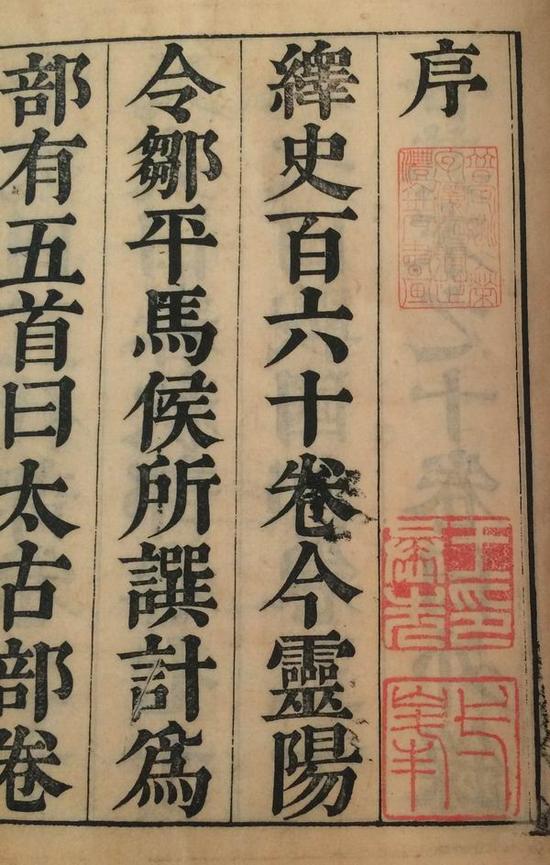 序
繹史百六十卷今靈陽
令鄒平馬侯所譔計爲
部有五首曰太古部卷